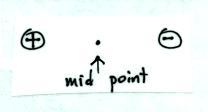 + -
mid point